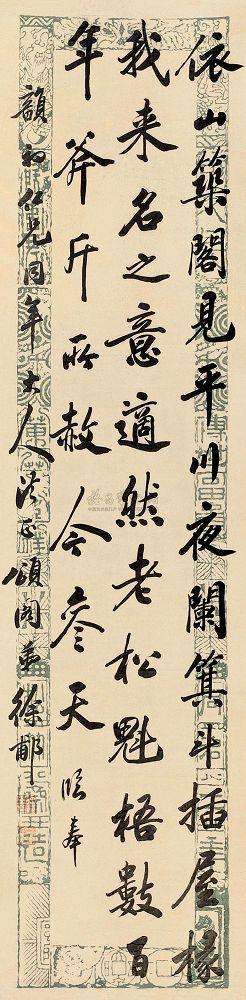 依山築閣見平川夜闌箕斗插屋椽
我来名之意適然老松魁梧數百
年斧斤所赦今參天 臨奉
韻初仁兄同年大人法正頌閣弟徐郙